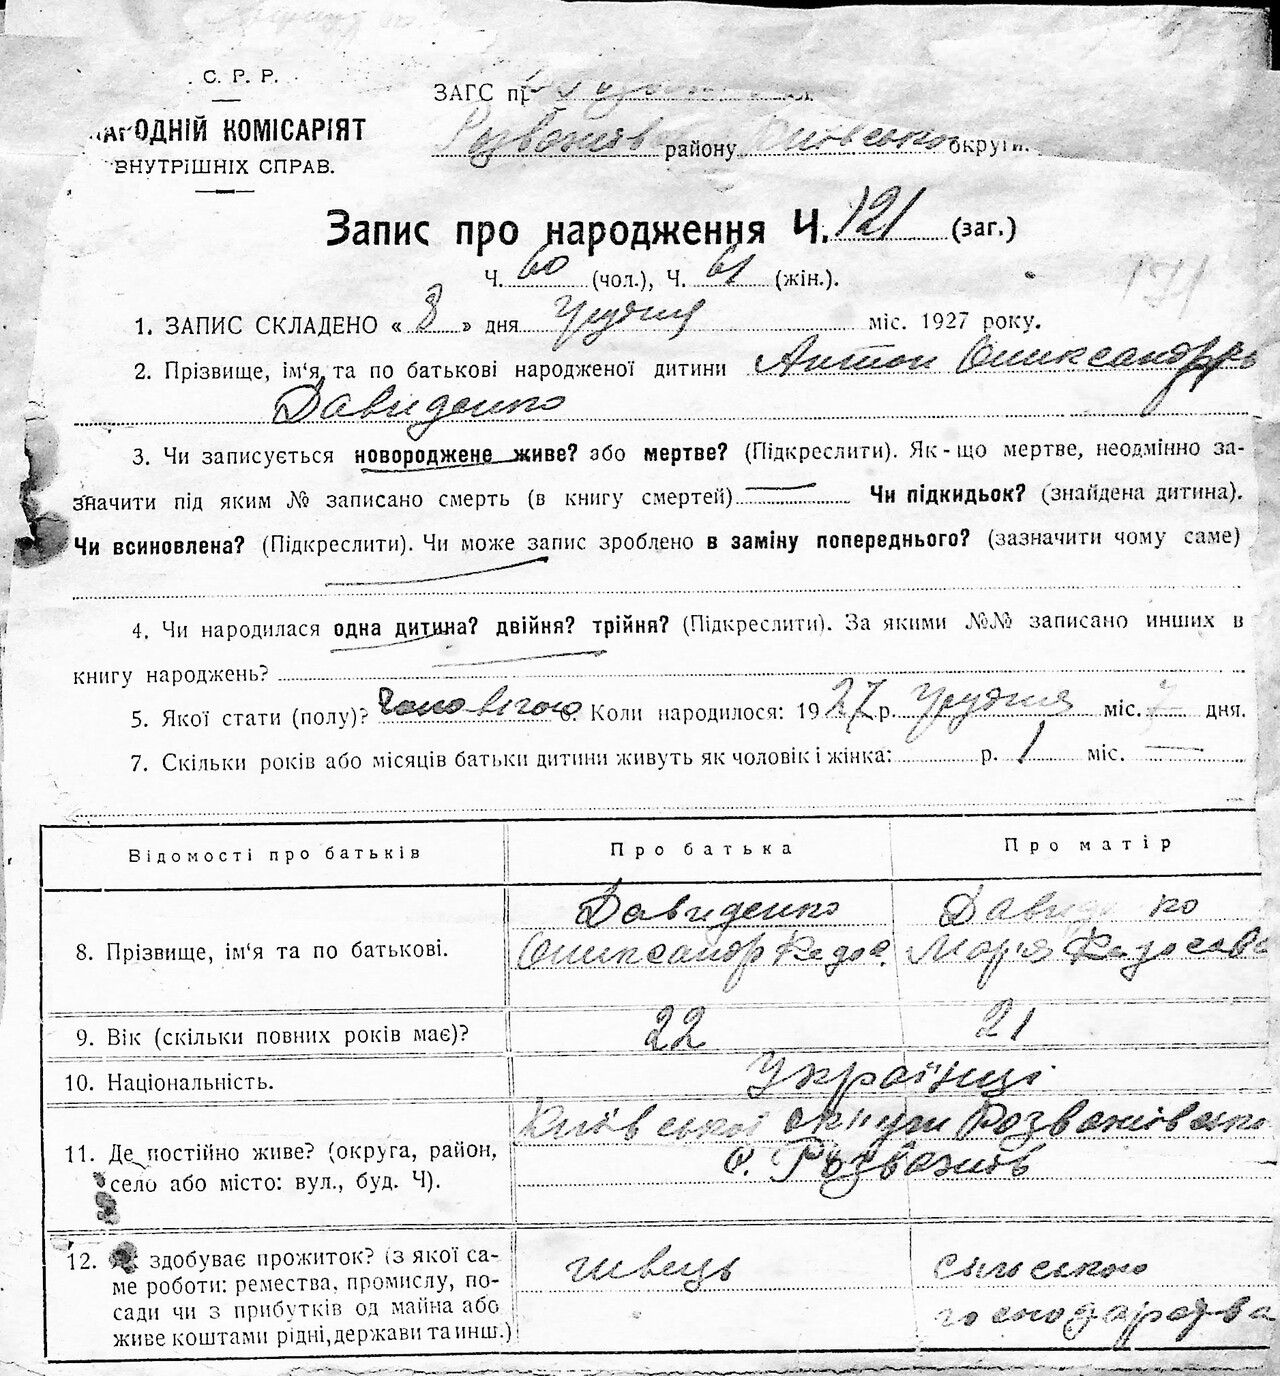 С. Р. Р.
НАРОДНІЙ КОМІСАРІЯТ
ВНУТРІШНІХ СПРАВ.
ЗАГС пр
району округи.
Запис про народження Ч. 121 (заг.)
Ч. 60 (чол.), Ч. 61 (жін.).
1. ЗАПИС СКЛАДЕНО « 8 » дня Грудня міс. 1927 року.
2. Прізвище, ім'я та по батькові народженої дитини Антон Олександр
Давиденко
3. Чи записується новороджене живе? або мертве? (Підкреслити). Як-що мертве, неодмінно за-
значити під яким № записано смерть (в книгу смертей) — Чи підкидьок? (знайдена дитина).
Чи всиновлена? (Підкреслити). Чи може запис зроблено в заміну попереднього? (зазначити чому саме)
4. Чи народилася одна дитина? двійня? трійня? (Підкреслити). За якими №№ записано инших в
книгу народжень?
5. Якої стати (полу)? 6. Коли народилося: 1927 р. Грудня міс. 7 дня.
7. Скільки років або місяців батьки дитини живуть як чоловік і жінка: р. 1 міс. —
Відомості про батьків Про батька Про матір
Давиденко
8. Прізвище, ім'я та по батькові. Олександр Федос. Мар'я
9. Вік (скільки повних років має)? 22 21
10. Національність. Українці
Київської округи
11. Де постійно живе? (округа, район, с. Розважів
село або місто: вул., буд. Ч).
12. здобуває прожиток? (з якої са- швець сільською
ме роботи: ремества, промислу, по-
сади чи з прибутків од майна або господарства
живе коштами рідні, держави та инш.)